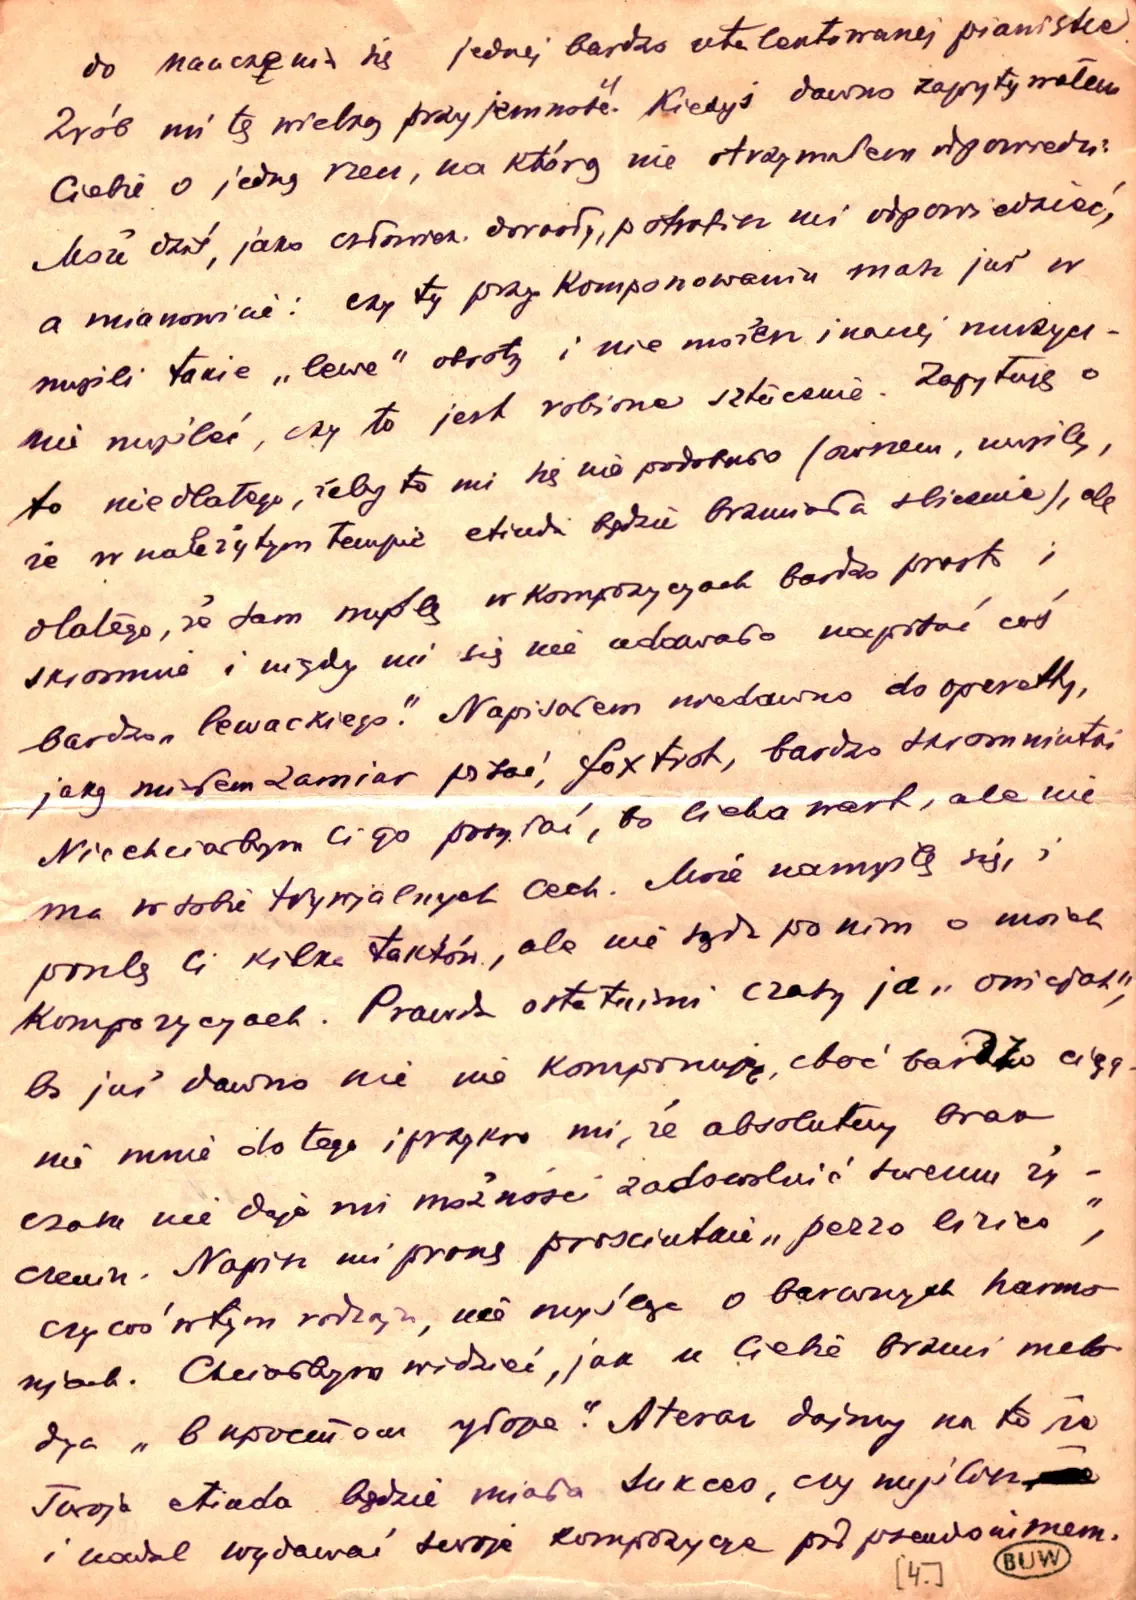 do nauczenia się jednej bardzo utalentowanej pianistce.
Zrób mi tę wielką przyjemność! Kiedyś dawno zapytywałem
Ciebie o jedną rzecz, na którą nie otrzymałem odpowiedzi.
Może dziś, jako człowiek dorosły, potrafisz mi odpowiedzieć,
a mianowicie: czy ty przy komponowaniu masz już w
myśli takie „lewe" obroty i nie możesz inaczej muzycz-
nie myśleć, czy to jest robione sztucznie. Zapytuję o
to nie dlatego, żeby to mi się nie podobało (owszem, myślę,
że w należytym tempie etiuda będzie brzmiała ślicznie), ale
dlatego, że sam myślę w kompozycjach bardzo prosto i
skromnie i nigdy mi się nie udawało napisać coś
bardzo „lewackiego". Napisałem niedawno do operetty,
jaką miałem zamiar pisać, foxtrot, bardzo skromniutki
Niechciałbym Ci go posyłać, bo licha wart, ale nie
ma w sobie trywjalnych cech. Może namyślę się, i
poszlę Ci kilka taktów, ale nie sądź po nim o moich
kompozycjach. Prawda ostatnimi czasy ja
bo już dawno nic nie komponuję, choć bardzo cią-
nie mnie do tego i przykro mi, że absolutny brak
czasu nie daje mi możności zadowolnić swemu ży-
czeniu. Napisz mi proszę prosciutkie „pezzo lirico",
czy coś w tym rodzaju, nie myśląc o barwnych harmo
njach. Chciałbym widzieć, jak u Ciebie brzmi melo
dya „в простом уборе". A teraz dajmy na to że
Twoja etiuda będzie miała sukces, czy myślisz
i nadal wydawać swoje kompozycje pod pseudonimem.
[4.] BUW